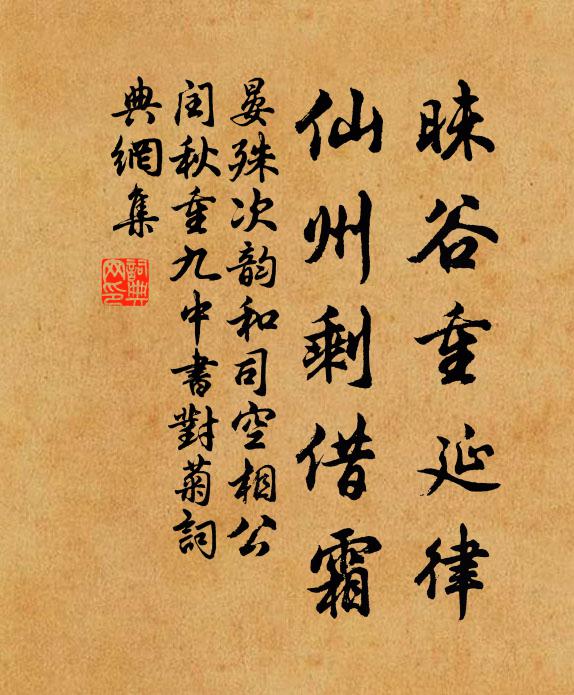 睐谷重延律
仙州剩借霜
晏殊次韵和司空相公
闰秋重九中書對菊詞
典網集
詞典网印